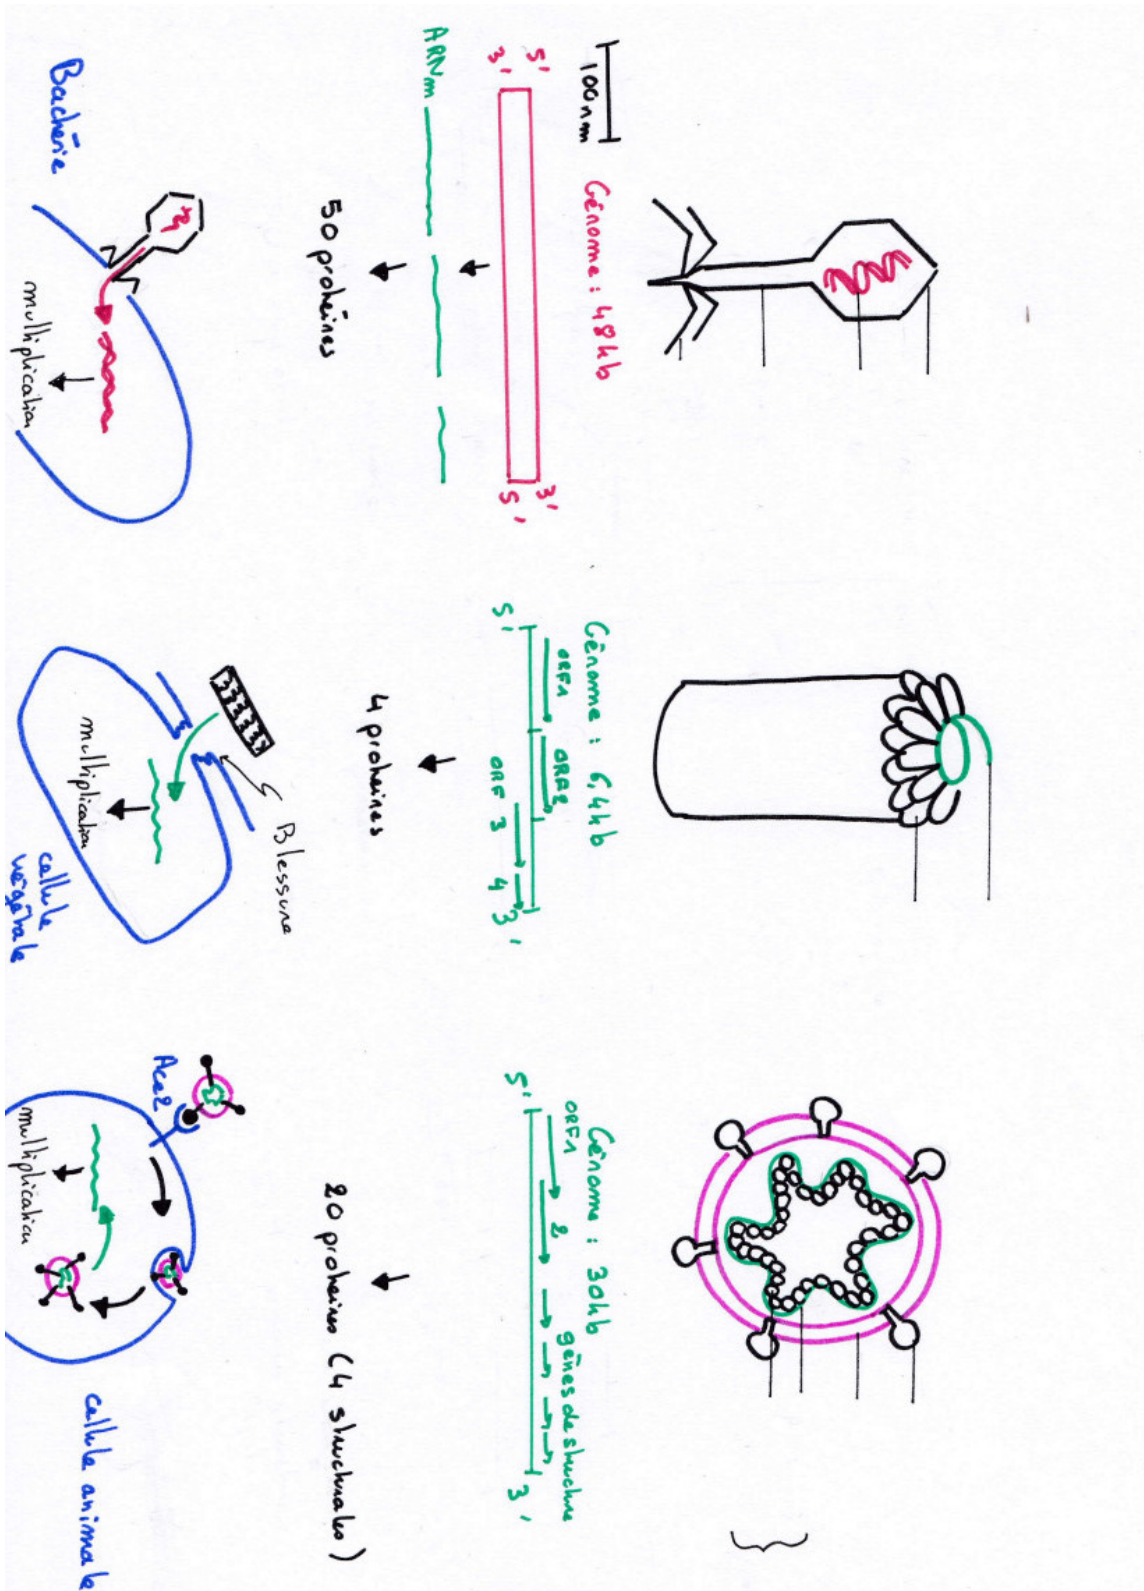 100nm
Génome : 48kb
5'
3'
3'
5'
ARNm
50 protéines
Bactérie
multiplication
Génome : 6,4kb
5'
ORF1
ORF2
ORF 3
4
3'
4 protéines
Blessure
multiplication
cellule
végétale
Génome : 30kb
5'
ORF1
2
gènes de structure
3'
20 protéines (4 structurales)
Ace2
multiplication
cellule animale